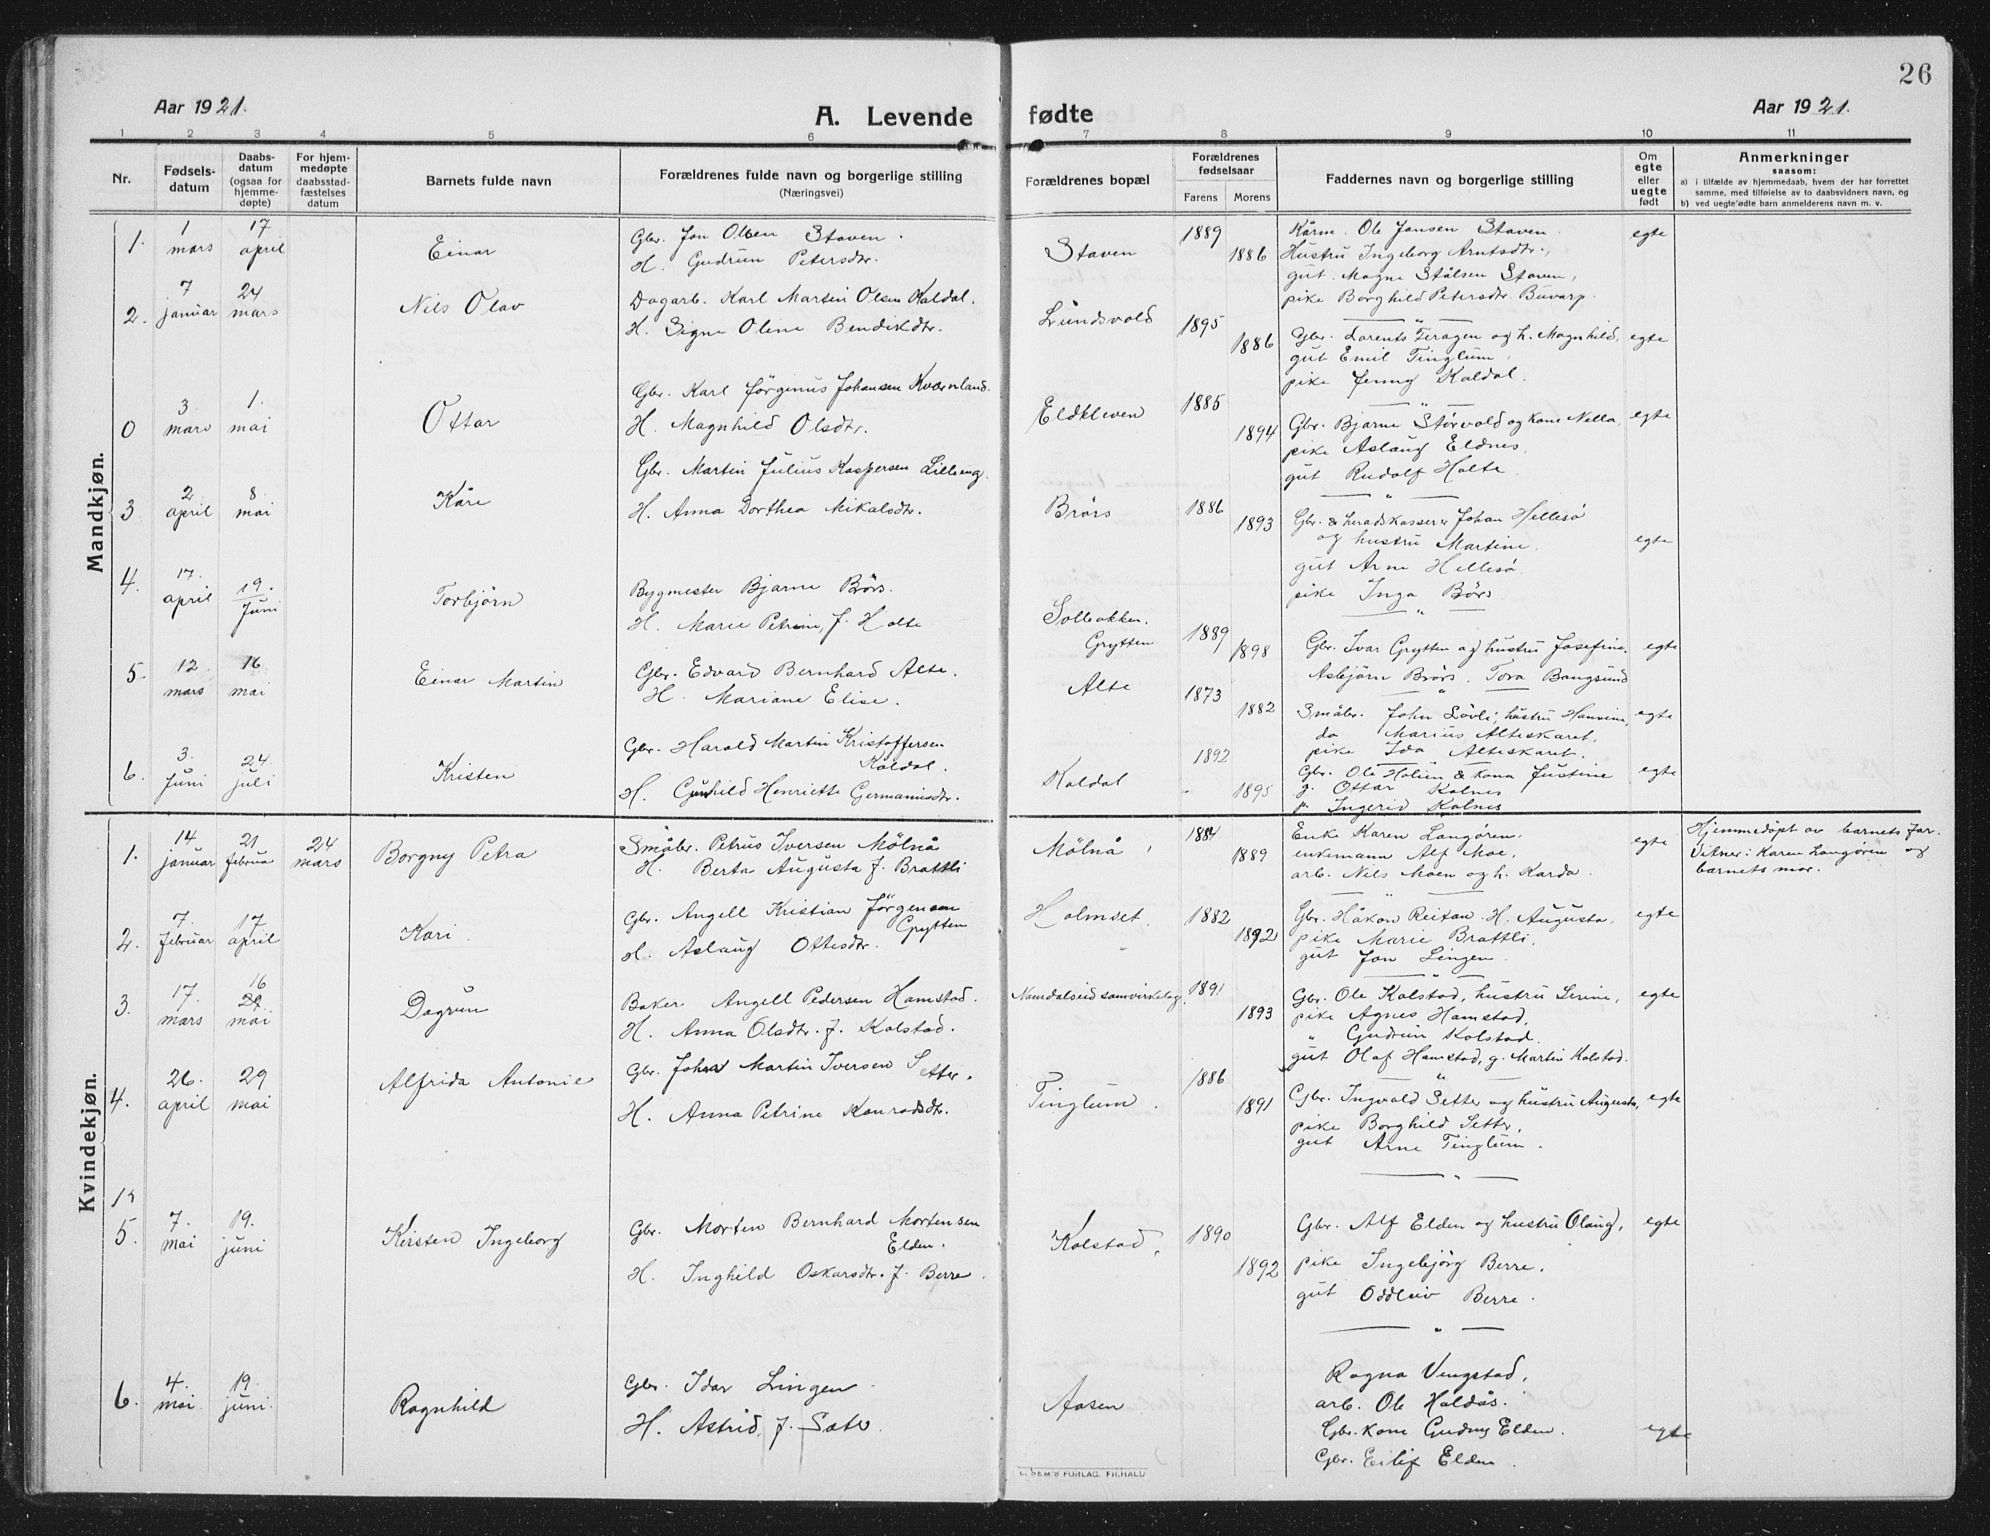 26
Aar 1921.
A. Levende fødte
Aar 1921.
1 2 3 4 5 6 7 8 9 10 11
Nr.
Fødsels-datum
Daabs-datum (ogsaa for hjemme-døpte)
For hjem-medøpte daabsstad-fæstelses datum
Barnets fulde navn
Forældrenes fulde navn og borgerlige stilling
(Næringsvei)
Forældrenes bopæl
Forældrenes fødselsaar
Farens Morens
Faddernes navn og borgerlige stilling
Om egte eller uegte født
Anmerkninger
saasom:
a) i tilfælde av hjemmedaab, hvem der har forrettet
samme, med tilføielse av to daabsvidners navn, og
b) ved uegtefødte barn anmelderens navn m. v.
Mandkjøn.
1. 1 mars 17 april Einar
Gbr. Jon Olsen Staven.
H. Gudrun Petersdtr.
Staven 1889 1886
Kårm. Ole Jansen Staven
Hustru Ingeborg Arntsdtr.,
gut. Magne Stålsen Staven,
pike Borghild Petersdtr. Buvarp.
egte
2. 7 januar 24 mars Nils Olav
Dagarb. Karl Martin Olsen Kaldal.
H. Signe Oline Bendiksdtr.
Lundsvold 1895 1886
Gbr. Lorents Teragen og h. Magnhild,
gut Emil Tinglum,
pike Jenny Kaldal.
egte
0 3. mars 1. mai Ottar
Gbr. Karl Jørginus Johansen Kvernland.
H. Magnhild Olsdtr.
Eldkleven 1885 1894
Gbr. Bjarne Størvold og kone Nella,
pike Aslaug Eldnes.
gut Rudolf Holte.
egte
3. 2 april 8. mai Kåre
Gbr. Martin Julius Kaspersen Lilleeng.
H. Anna Dorthea Mikalsdtr.
Brørs 1886 1893
Gbr. & heradskasserer Johan Hellesø
og hustru Martine.
gut Arne Hellesø.
pike Inga Børs.
egte
4. 17. april 19. Juni Torbjørn
Bygmester Bjarne Brørs.
H. Marie Petrine, f. Holte
Solbakken.
Grytten 1889 1898
Gbr. Ivar Grytten og hustru Josefine.
Asbjørn Brørs. Tora Bangsund
egte
5. 12 mars 16 mai Einar Martin
Gbr. Edvard Bernhard Alte.
H. Mariane Elise.
Alte 1873 1882
Småbr. John Løvli, hustru Hansine,
do Marius Alteskaret,
pike Ida Alteskaret.
egte
6. 3. Juni 24. juli Kristen
Gbr. Harald Martin Kristoffersen
Kaldal.
H. Gunhild Henriette Germanusdtr.
Kaldal 1892 1895
Gbr. Ole Holien & kona Justine
g. Ottar Kolnes
p. Ingerid Kalnes
egte
Kvindekjøn.
1. 14 januar 21 februar 24 mars Borgny Petra
Småbr. Petrus Iversen Mølnå
H. Berta Augusta f. Brattli
Mølnå 1884 1889
Enke Karen Langøren.
enkemann Alf Moe.
arb. Nils Moen og h. Karda.
egte
Hjemmedøpt av barnets far.
Vitner: Karen Langøren og
barnets mor.
2. 7. februar 17 april Kari.
Gbr. Angell Kristian Jørgensen
Grytten
H. Aslaug Ottesdtr.
Holmset. 1882 1892
Gbr. Håkon Reitan. H. Augusta,
pike Marie Brattli.
gut Jon Lingen.
egte
3. 17. mars 16 mai Dagrun
Baker Angell Pedersen Hamstad.
H. Anna Olsdtr. f. Kolstad.
Namdalseid samvirkelag. 1891 1893
Gbr. Ole Kolstad, hustru Serine,
pike Agnes Hamstad,
" Gudrun Kolstad.
gut Olaf Hamstad, g. Martin Kolstad.
egte
4. 26. april 29 mai Alfrida Antonie
Gbr. Johan Martin Iversen Setter.
H. Anna Petrine Konradsdtr.
Tinglum. 1886 1891
Gbr. Ingvald Setter og hustru Augusta,
pike Borghild Setter,
gut Arne Tinglum.
egte
5. 7. mai 19. juni Kirsten Ingeborg
Gbr. Morten Bernhard Mortensen
Elden.
H. Inghild Oskarsdtr. f. Berre.
Kolstad, 1890 1892
Gbr. Alf Elden og hustru Olaug,
pike Ingebjørg Berre.
gut Oddleiv Berre.
egte
6. 4. mai 19. juni. Ragnhild
Gbr. Idar Lingen.
H. Astrid, f. Sæter
Aasen
Ragna Vengstad,
arb. Ole Haldås.
Gbr. kone Gudny Elden.
Gbr. Eilif Elden.
egte
E. SEM'S FORLAG, FR.HALD